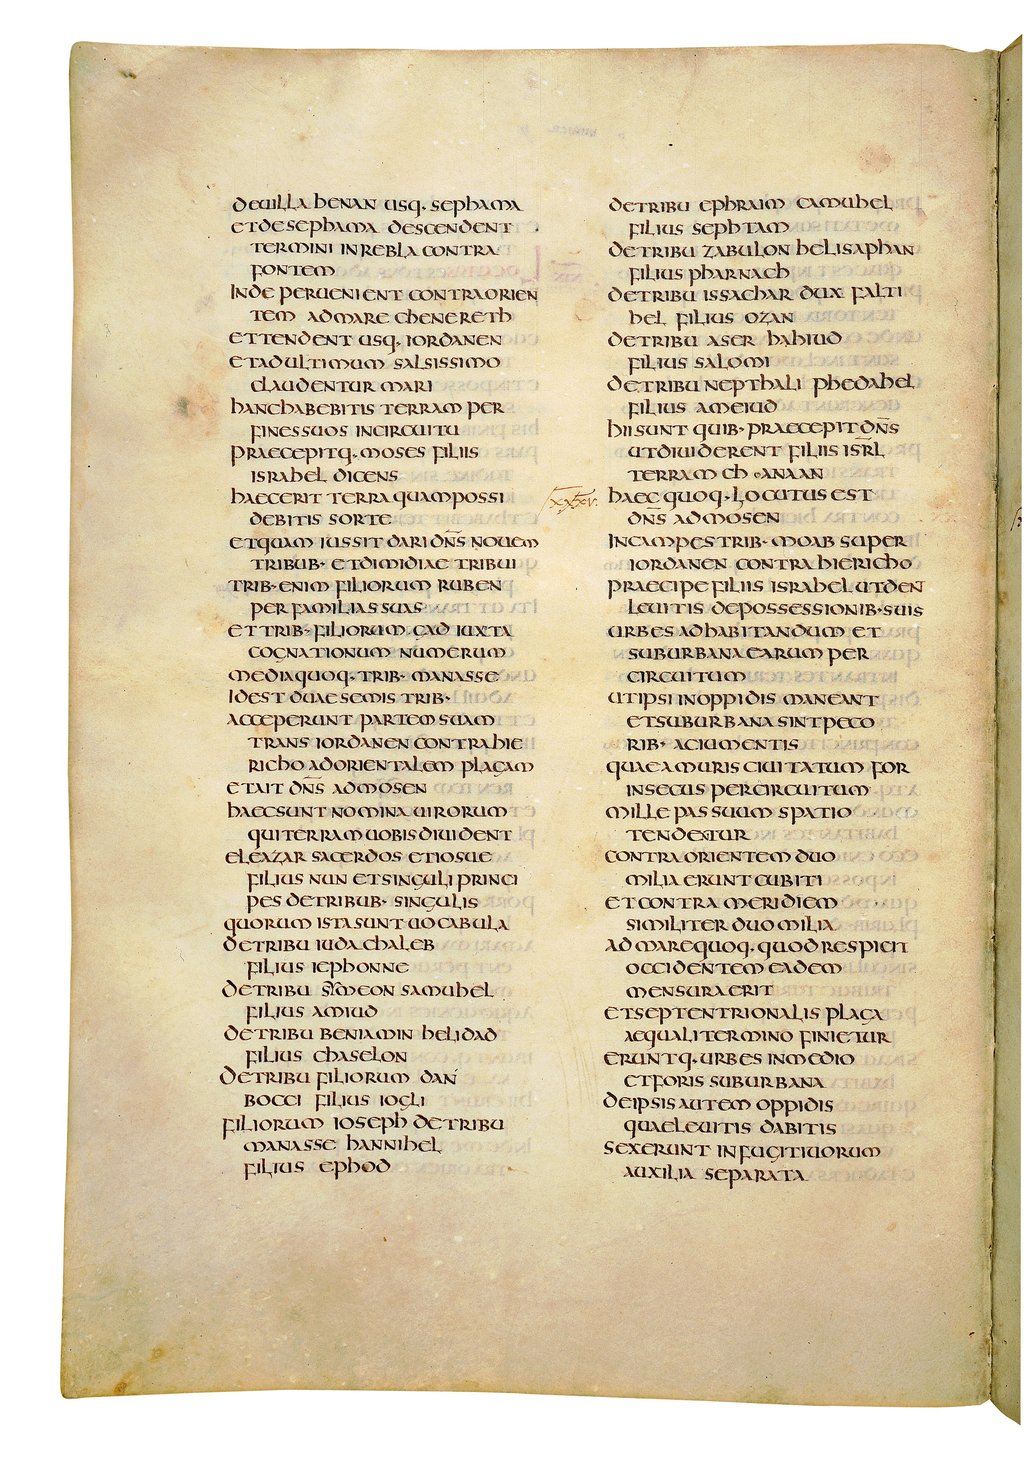 deuilla henan usq· sephama
et de sephama descendent
termini in rebla contra
fontem
inde peruenient contra orien
tem ad mare chenereth
et tendent usq· iordanen
et ad ultimum salsissimo
claudentur mari
hanc habebitis terram per
fines suos in circuitu
praecepitq· moses filiis
israhel dicens
haec erit terra quam possi
debitis sorte
et quam iussit dari dñs nouem
tribub· et dimidiae tribui
trib· enim filiorum ruben
per familias suas
et trib· filiorum gad iuxta
cognationum numerum
media quoq· trib· manasse
id est duae semis trib·
acceperunt partem suam
trans iordanen contra hie
richo ad orientalem plagam
et ait dñs ad mosen
haec sunt nomina uirorum
qui terram uobis diuident
eleazar sacerdos et iosue
filius nun et singuli princi
pes de tribub· singulis
quorum ista sunt uocabula
de tribu iuda chaleb
filius iephonne
de tribu symeon samuhel
filius amiud
de tribu beniamin helidad
filius chaselon
de tribu filiorum dan
bocci filius iogli
filiorum ioseph de tribu
manasse hannihel
filius ephod
de tribu ephraim camuhel
filius sephtam
de tribu zabulon helisaphan
filius pharnach
de tribu issachar dux falti
hel filius ozan
de tribu aser hahiud
filius salomi
de tribu nepthali phedahel
filius ameiud
hii sunt quib· praecepit dñs
ut diuiderent filiis isrl
terram chanaan
xxxv· haec quoq· locutus est
dñs ad mosen
in campestrib· moab super
iordanen contra hiericho
praecipe filiis israhel ut den
leuitis de possessionib· suis
urbes ad habitandum et
suburbana earum per
circuitum
ut ipsi in oppidis maneant
et suburbana sint peco
rib· ac iumentis
quae a muris ciuitatum for
insecus per circuitum
mille passuum spatio
tendetur
contra orientem duo
milia erunt cubiti
et contra meridiem
similiter duo milia
ad mare quoq· quod respicit
occidentem eadem
mensura erit
et septentrionalis plaga
aequali termino finietur
eruntq· urbes in medio
et foris suburbana
de ipsis autem oppidis
quae leuitis dabitis
sex erunt in fugitiuorum
auxilia separata